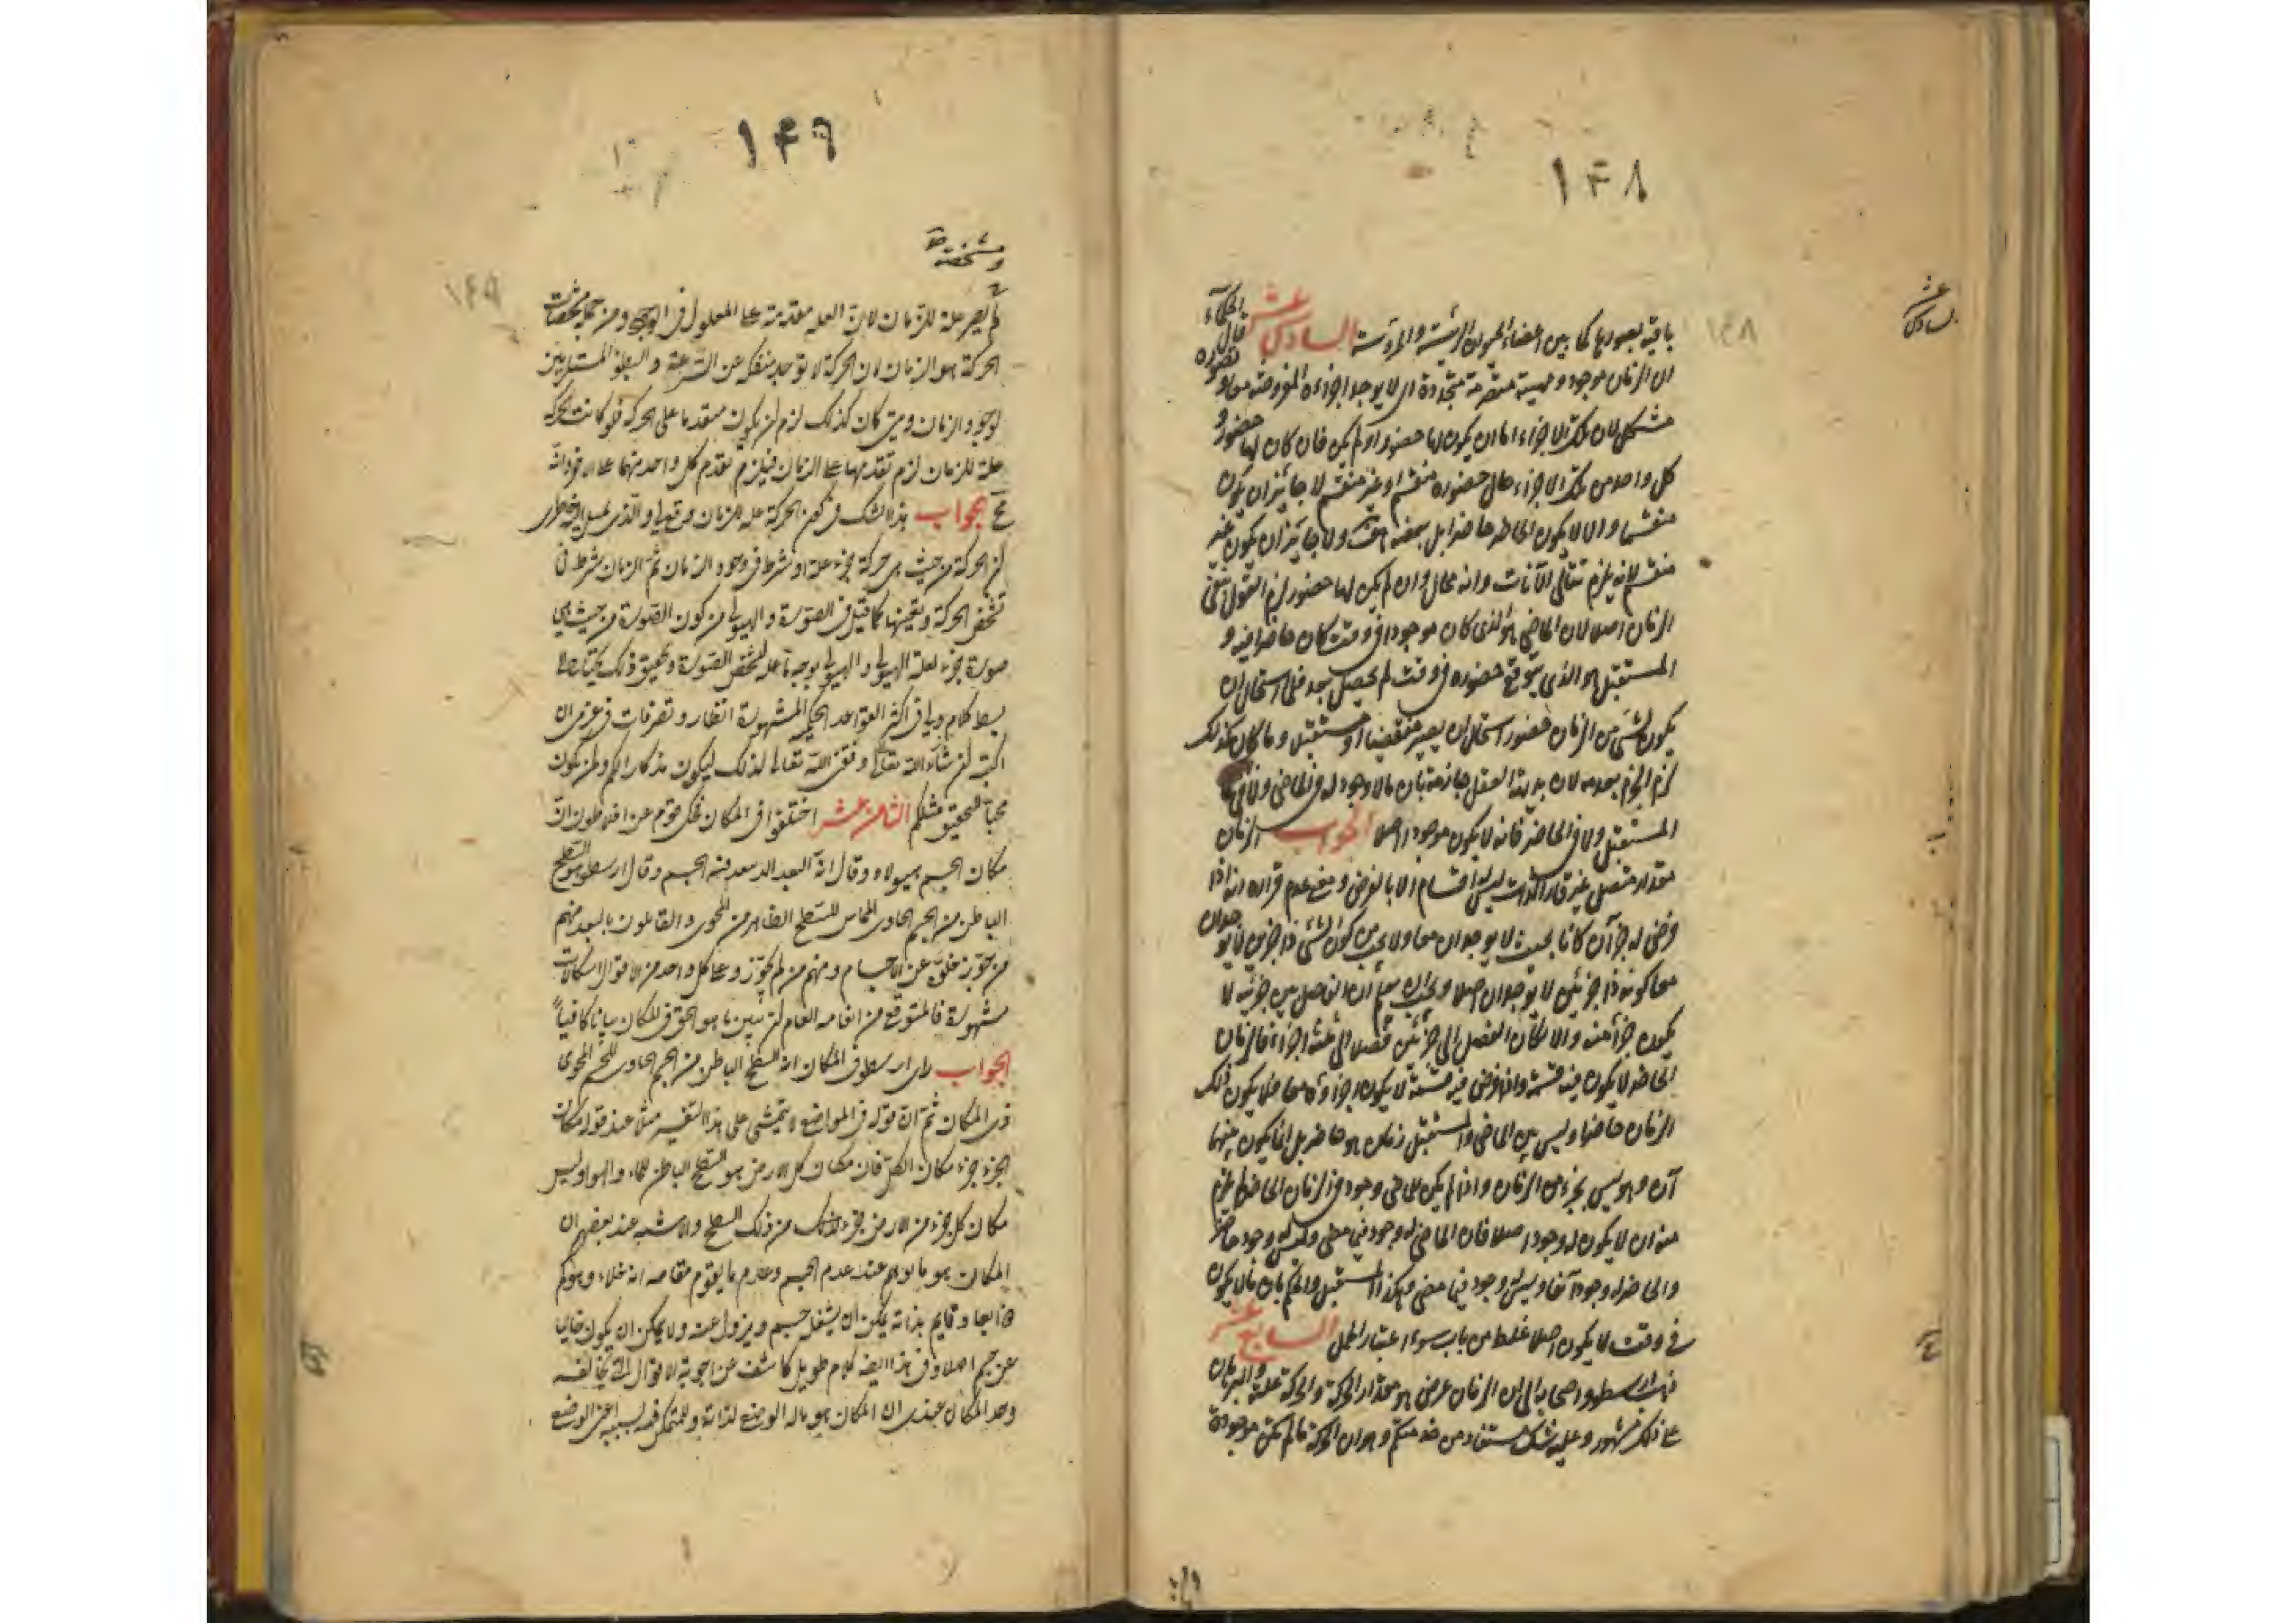 ١۴٨
١۴٨
السادس عشر
باقية بصورها كما بين اعضاء الحيوان الرئيسة والمرؤسة السادس عشر قال الحكماء
ان الزمان موجود ومهيته متصرمة متجددة اى لا يوجد اجزاءه المفروضة معا وتصوره
مشكل لان تلك الاجزاء اما ان يكون لها حضور او لم يكن فان كان لها حضور و
كل واحد من تلك الاجزاء حال حضوره منقسم او غير منقسم لا جائز ان يكون
منقسما والا لا يكون الحاضر حاضرا بل بعضه ولا جائز ان يكون غير
منقسم لانه يلزم تتالى الآنات وانه محال وان لم يكن لها حضور لزم القول بنفى
الزمان اصلا لان الماضى هو الذى كان موجودا فى وقت كان حاضرا فيه و
المستقبل هو الذى يتوقع حضوره فى وقت لم يحصل بعد فلما استحال ان
يكون لشىء من الزمان حضور استحال ان يصير منقضيا او مستقبلا وما كان كذلك
لزم الجزم بعدمه لان بديهة العقل جازمة بان ما لا وجود له فى الماضى ولا فى
المستقبل ولا فى الحاضر فانه لا يكون موجودا اصلا الجواب الزمان
مقدار متصل غير قار الذات ليس له اقسام الا بالفرض ومعنى عدم قراره انه اذا
فرض له جزآن كانا بحيث لا يوجدان معا ولا يجب من كون الشىء ذا جزءين لا يوجدان
معا كونه ذا جزئين لا يوجدان اصلا ويجب ان يعلم ان الفاصل بين جزئيه لا
يكون جزأ منه والا لكان الفصل الى جزئين فصلا الى ثلثة اجزاء فالزمان
الحاضر لا يكون فيه قسمة واذا فرض فيه قسمة لا يكون اجزاؤه معا فلا يكون ذلك
الزمان حاضرا وليس بين الماضى والمستقبل زمان هو حاضر بل انما يكون بينهما
آن وهو ليس بجزء من الزمان واذا لم يكن للماضى وجود فى الزمان الحاضر لم يلزم
منه ان لا يكون له وجود اصلا فان الماضى له وجود فيما مضى وليس له وجود حاضر
والحاضر له وجود آنفا وليس له وجود فيما مضى وهكذا المستقبل والحكم بان ما لا يكون
فى وقت لا يكون اصلا غلط من باب سوء اعتبار الحمل السابع عشر
ذهب ارسطو واصحابه الى ان الزمان عرض هو مقدار الحركة والحركة علته والبرهان
على ذلك مشهور وعليه شك مستفاد من خدمتكم وهو ان الحركة ما لم تكن موجودة
١۴٩
١۴٩
ومشخصة
لم يصر علة للزمان لان العلة متقدمة على المعلول فى الوجود ومن جملة مشخصات
الحركة هو الزمان لان الحركة لا توجد منفكة عن السرعة والبطؤ المستلزمين
لوجود الزمان ومتى كان كذلك لزم ان يكون متقدما على الحركة فلو كانت الحركة
علة للزمان لزم تقدمها على الزمان فيلزم تقدم كل واحد منهما على الآخر وانه
مح الجواب هذا الشك فى كون الحركة علة للزمان
ان الحركة من حيث هى حركة جزء علة او شرط فى وجود الزمان ثم الزمان شرط فى
تشخص الحركة وتعينها كما قيل فى الصورة والهيولى من كون الصورة من حيث هى
صورة جزء لعلة الهيولى والهيولى بوجه ما علة لتشخص الصورة وتحقيق ذلك يحتاج الى
بسط كلام ولى فى اكثر القواعد الحكمية المشهورة انظار وتصرفات فى عزمى ان
اكتب ان شاء الله تعالى وفقنى الله تعالى لذلك ليكون تذكارا لكم ولمن يكون
محبا للتحقيق مثلكم الثامن عشر اختلفوا فى المكان فحكى قوم عن افلاطون ان
مكان الجسم هيولاه وقال انه البعد الذى ينفذ فيه الجسم وقال ارسطو هو السطح
الباطن من الجرم الحاوى المماس للسطح الظاهر من المحوى والقائلون بالبعد منهم
من جوز خلوه عن الاجسام ومنهم من لم يجوز وعلى كل واحد من الاقوال اشكالات
مشهورة فالمتوقع من انعامه العام ان يبين ما هو الحق فى المكان بيانا كافيا
الجواب راى ارسطو فى المكان انه السطح الباطن من الجرم الحاوى للجرم المحوى
ذى المكان ثم ان قوله فى المواضع لا يتمشى على هذا التفسير مثلا عند قوله مكان
الجزء جزء مكان الكل فان مكان كل الارض هو السطح الباطن للماء والهواء وليس
مكان كل جزء من الارض جزء لذلك من ذلك السطح والاشبه عند بعضهم ان
المكان هو ما يوهم عند عدم الجسم وعدم ما يقوم مقامه انه خلاء وهو
ذا ابعاد قائم بذاته يمكن ان يشغله جسم ويزول عنه ولا يمكن ان يكون خاليا
عن جسم اصلا وفى هذا ايضا كلام طويل كاشف عن اجوبة الاقوال التى تخالفه
وحد المكان عندى ان المكان هو ما له الوضع لذاته وللمتمكن فيه بسببه اعنى الوضع